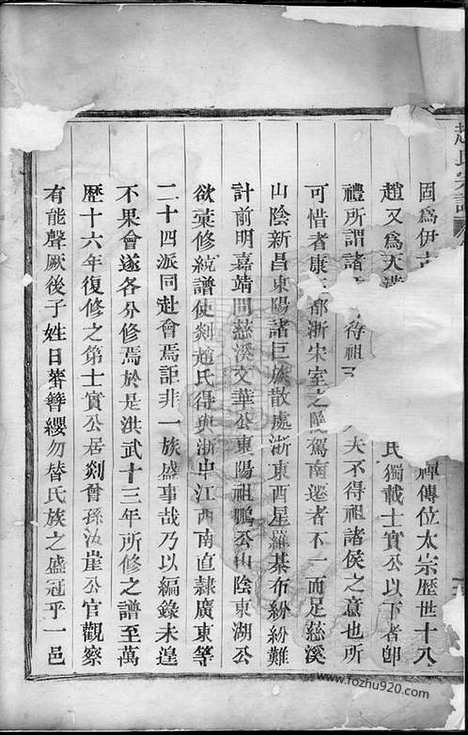 趙氏宗譜
固爲伊古
禪傳位太宗歷世十八
趙又爲天潢
氏獨載士實公以下者卽
禮所謂諸
得祖
夫不得祖諸侯之意也
可惜者康
都浙宋室之
駕南遷者不一而足慈溪
山陰新昌東陽諸巨族散處浙東西星羅棊布紛紛難
計前明嘉靖間慈溪文華公東陽祖鵬公山陰東湖公
欲彙修統譜使剡趙氏得與浙中江西南直隸廣東等
二十四派同赴會焉詎非一族盛事哉乃以編錄未遑
不果會遂各分修焉於是洪武十三年所修之譜至萬
歷十六年復修之第士實公居剡曾孫汝崖公官觀察
有能聲厥後子姓日蕃簪纓勿替氏族之盛冠乎一邑
www.fozhu920.com